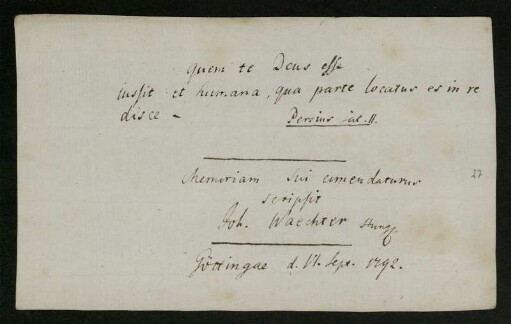 quem te Deus esse
iussit et humana, qua parte locatus es in re
disce –
Persius sat. II.
Memoriam sui comendaturus
scripsit
Joh. Waechter
Göttingae d. VI. Sept. 1792.
27